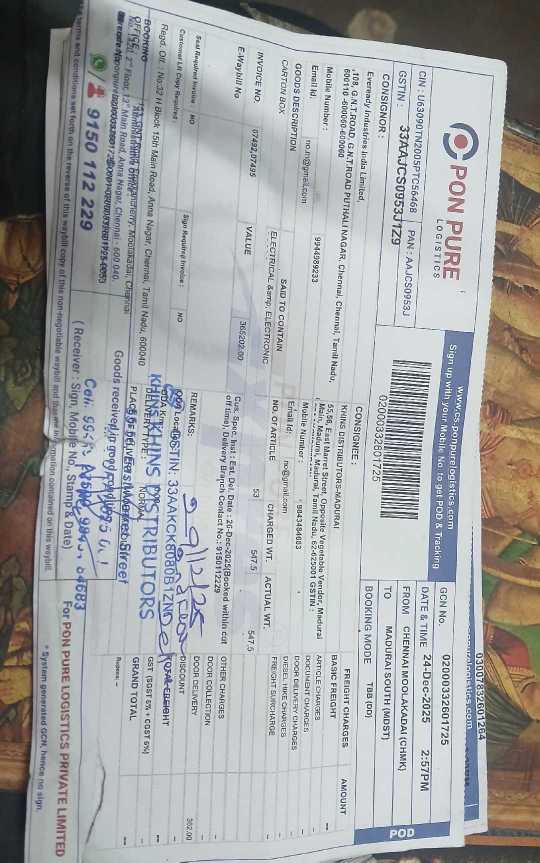 PON PURE
LOGISTICS
CIN : U63090TN2005PTC56468 PAN : AAJCS0953J
GSTIN : 33AAJCS0953J1Z9
www.cs.ponpurelogistics.com
Sign up with your Mobile No. to get POD & Tracking
02000332601725
POD
GCN No. 02000332601725
DATE & TIME 24-Dec-2025 2:57PM
FROM CHENNAI MOOLAKADAI (CHMK)
TO MADURAI SOUTH (MDST)
BOOKING MODE TBB (DD)
CONSIGNOR :
Eveready Industries India Limited,
,108, G.N.T.ROAD, G.N.T ROAD PUTHALI NAGAR, Chennai, Chennai, Tamil Nadu,
600110 -600060-600060
Mobile Number : 9944989233
Email Id. no.n@gmail.com
CONSIGNEE :
KHINS DISTRIBUTORS-MADURAI
55,56, East Marret Street, Opposite Vegetable Vendor, Madurai
Main, Madurai, Madurai, Tamil Nadu, 62-625001 GSTIN :
Mobile Number : 9843484683
Email Id: no@gmail.com
GOODS DESCRIPTION SAID TO CONTAIN NO. OF ARTICLE CHARGED WT. ACTUAL WT.
CARTON BOX ELECTRICAL &amp; ELECTRONIC 53 547.5 547.5
INVOICE NO. 07492,07495 VALUE 365202.00
E-Waybill No
Cus. Spec. Inst : Est. Del. Date : 26-Dec-2025(Booked within cut
off time), Delivery Branch Contact No : 9150112229
REMARKS:
Seal Required Invoice : NO Sign Required Invoice : NO
Customer LR Copy Required :
FREIGHT CHARGES AMOUNT
BASIC FREIGHT --
ARTICLE CHARGES
DOCUMENT CHARGES
DOOR DELIVERY CHARGES
DIESEL HIKE CHARGES
FREIGHT SURCHARGE
OTHER CHARGES
DOOR COLLECTION
DOOR DELIVERY
DISCOUNT 362.00
TOTAL FREIGHT
GST (SGST 6% + CGST 6%)
GRAND TOTAL --
Rupees: --
29/12/25
GSTIN: 33AAKCK6080B1ZN
KHINS DISTRIBUTORS
DELIVERY TYPE : NORMAL
BOOKING
OFFICE:
Regd. Off : No.32 H Block 15th Main Road, Anna Nagar, Chennai, Tamil Nadu, 600040
Administrative Office
2nd Floor, 13th Main Road, Anna Nagar, Chennai - 600 040.
9150 112 229
Goods received in good condition
( Receiver : Sign, Mobile No., Stamp & Date)
For PON PURE LOGISTICS PRIVATE LIMITED
* System generated GCN, hence no sign.
terms and conditions set forth on the reverse of this waybill copy of this non-negotiable waybill and the information contained on this waybill.